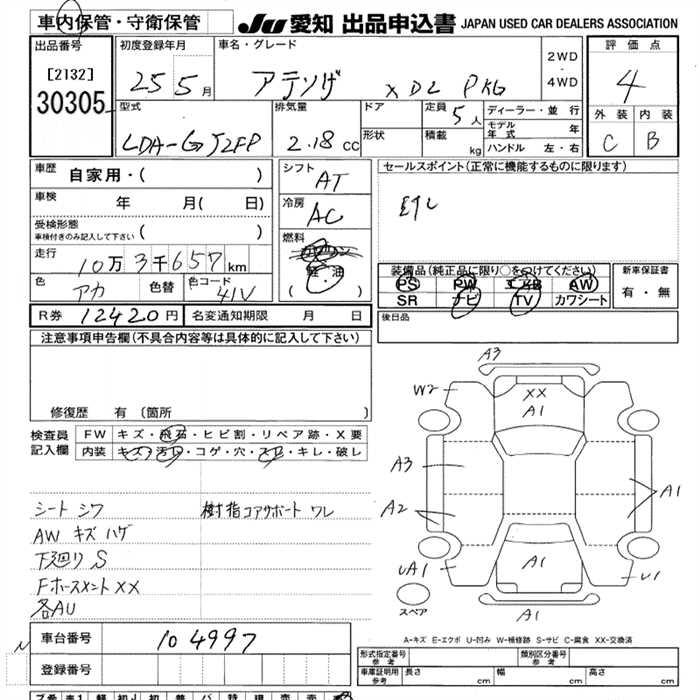 車内保管・守衛保管
JU 愛知 出品申込書 JAPAN USED CAR DEALERS ASSOCIATION
出品番号
[2132]
30305
初度登録年月
25 5月
車名・グレード
アテンザ XDL PKG
2WD
・
4WD
評価点
4
外装 内装
C B
型式
LDA-GJ2FP
排気量
2.18 cc
ドア
形状
定員 5人
積載 kg
ディーラー・並行
モデル年式 年
ハンドル 左・右
車歴
自家用・( )
車検 年 月( 日)
受検形態
車検付きのみ記入して下さい ( )
走行 10万3千657km
色 アカ 色替 色コード 41V
シフト AT
冷房 AC
燃料
軽・油
( ・ )
セールスポイント(正常に機能するものに限ります)
装備品(純正品に限り○をつけてください)
PS PW エアB AW
SR ナビ TV カワシート
新車保証書
有・無
R券 12420円 名変通知期限 月 日
後日品
注意事項申告欄(不具合内容等は具体的に記入して下さい)
修復歴 有(箇所
検査員記入欄
FW キズ・飛石・ヒビ割・リペア跡・X要
内装 キズ・汚レ・コゲ・穴・スレ・キレ・破レ
シート シワ 樹指コアサポート ワレ
AW キズ ハゲ
下廻り S
Fホースメント XX
各AU
A3
W2
XX
A1
A3
A2
A1
A1
UA1
U1
A1
スペア
A-キズ E-エクボ U-凹み W-補修跡 S-サビ C-腐食 XX-交換済
車台番号 104997
登録番号
形式指定番号 参考
類別区分番号 参考
車庫証明用 参考 長さ cm 幅 cm 高さ cm